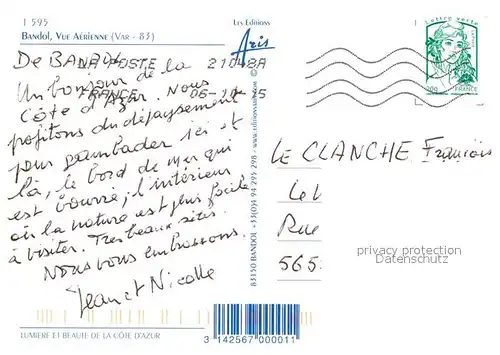 1 595
Les Editions
Aris
BANDOL, VUE AÉRIENNE (VAR - 83)
LETTRE VERTE
20g FRANCE
LA POSTE 21048A
FRANCE 06-10-15
De BANDOL
Un bonjour de la
Côte d'Azur. Nous
profitons du dépaysement
pour gambader ici et
là, le bord de mer qui
est bourré, l'intérieur
où la nature est plus facile
à visiter. Tres beaux sites.
Nous vous embrassons.
Jean et Nicolle
83150 BANDOL +33(0)4 94 295 298
LE CLANCHE François
Le
Rue
565
privacy protection
Datenschutz
LUMIÈRE ET BEAUTÉ DE LA CÔTE D'AZUR
3 142567 000011